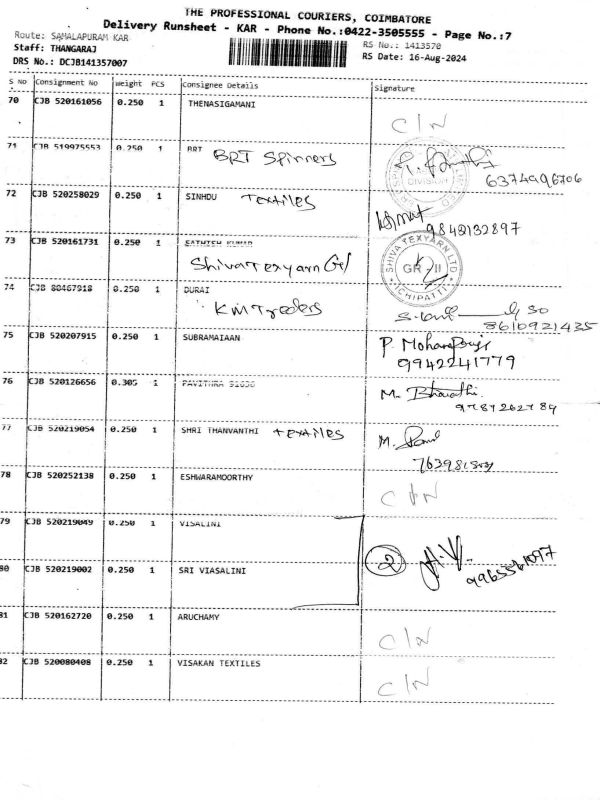 THE PROFESSIONAL COURIERS, COIMBATORE
Delivery Runsheet - KAR - Phone No.:0422-3505555 - Page No.:7
Route: SAMALAPURAM KAR
RS No.: 1413570
Staff: THANGARAJ
RS Date: 16-Aug-2024
DRS No.: DCJB141357007
S No Consignment No Weight PCS Consignee Details Signature
70 CJB 520161056 0.250 1 THENASIGAMANI C/N
71 CJB 519975553 0.250 1 BRT BRT Spinners
DIVISION
6374996706
72 CJB 520258029 0.250 1 SINHDU Textiles
9843132897
73 CJB 520161731 0.250 1 SATHISH KUMAR
Shiva Texyarn
SHIVA TEXYARN LTD
GR II
ICHIPATTI
74 CJB 80467918 0.250 1 DURAI
KM Traders
8610921435
75 CJB 520207915 0.250 1 SUBRAMAIAAN
P. Mohan
9942241779
76 CJB 520126656 0.305 1 PAVITHRA
M. Bharathi
77 CJB 520219054 0.250 1 SHRI THANVANTHI textiles
M.
78 CJB 520252138 0.250 1 ESHWARAMOORTHY C/N
79 CJB 520219049 0.250 1 VISALINI
2
9965561097
80 CJB 520219002 0.250 1 SRI VIASALINI
81 CJB 520162720 0.250 1 ARUCHAMY C/N
82 CJB 520080408 0.250 1 VISAKAN TEXTILES C/N